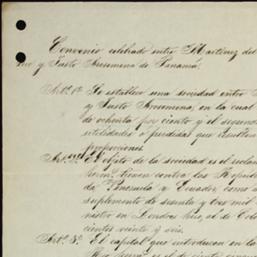 Convenio celebrado entre Martinez del
rio y Justo Arosemena de Panamá.
Art.o 1.o Se establece una sociedad entre
y Justo Arosemena, en la cual
de ochenta por ciento y el segundo
utilidades o perdidas que resulten
proporciones
El objeto de la sociedad es el reclam
tienen contra las Repub
da, Venezuela y Ecuador, como
suplemento de sesenta y tres mil
Londres hizo, al de Colo
cientos veinte y seis.
Art.o 3.o El capital que introducen en la
es de ciento